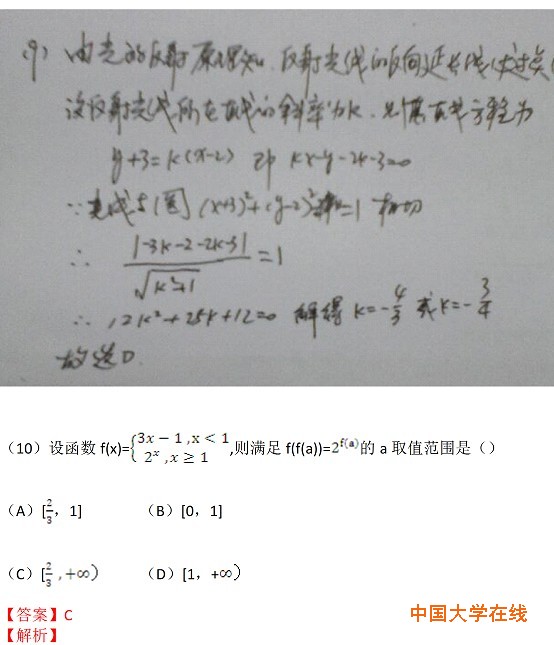 (9) 由光的反射原理知,反射光线的反向延长线
设反射光线所在直线的斜率为k,
y+3=k(x-2) 即 kx-y-2k-3=0
∵光线与圆(x+3)²+(y-2)²=1相切
∴ |-3k-2-2k-3|/√(k²+1)=1
∴12k²+25k+12=0 解得 k=-4/3 或k=-3/4
故选D
(10)设函数f(x)={3x−1,x<1 2ˣ,x≥1,则满足f(f(a))=2^f(a)的a取值范围是()
(A)[2/3,1] (B)[0,1]
(C)[2/3,+∞) (D)[1,+∞)
【答案】C 中国大学在线
【解析】